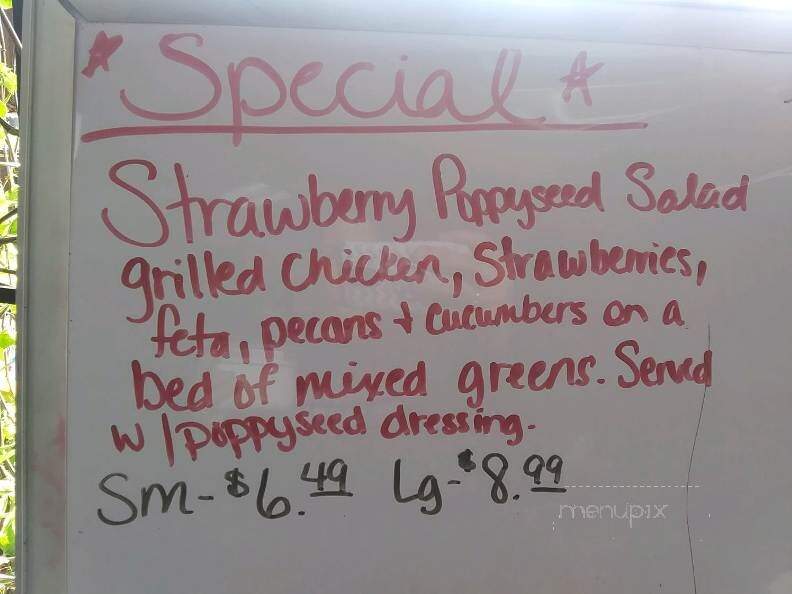 *Special*
Strawberry Poppyseed Salad
grilled chicken, strawberries,
feta, pecans + cucumbers on a
bed of mixed greens. Served
w/poppyseed dressing.
Sm-$6.49 Lg-$8.99
menupix